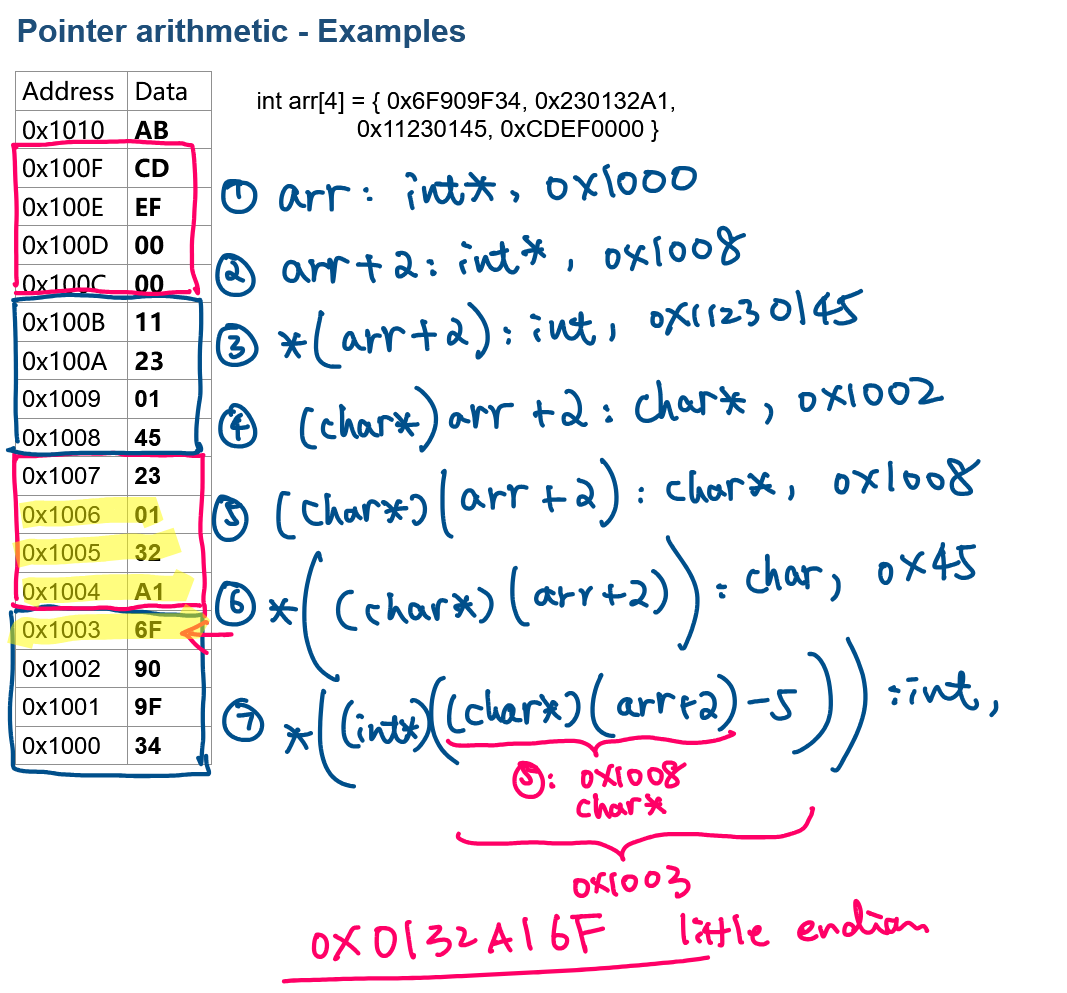 Pointer arithmetic - Examples
Address Data
0x1010 AB
0x100F CD
0x100E EF
0x100D 00
0x100C 00
0x100B 11
0x100A 23
0x1009 01
0x1008 45
0x1007 23
0x1006 01
0x1005 32
0x1004 A1
0x1003 6F
0x1002 90
0x1001 9F
0x1000 34
int arr[4] = { 0x6F909F34, 0x230132A1,
0x11230145, 0xCDEF0000 }
① arr: int*, 0x1000
② arr+2: int*, 0x1008
③ *(arr+2): int, 0x11230145
④ (char*)arr +2: char*, 0x1002
⑤ (char*)(arr+2): char*, 0x1008
⑥ *((char*)(arr+2)): char, 0x45
⑦ *((int*)((char*)(arr+2)-5)): int,
⑤: 0x1008
char*
0x1003
0x0132A16F little endian